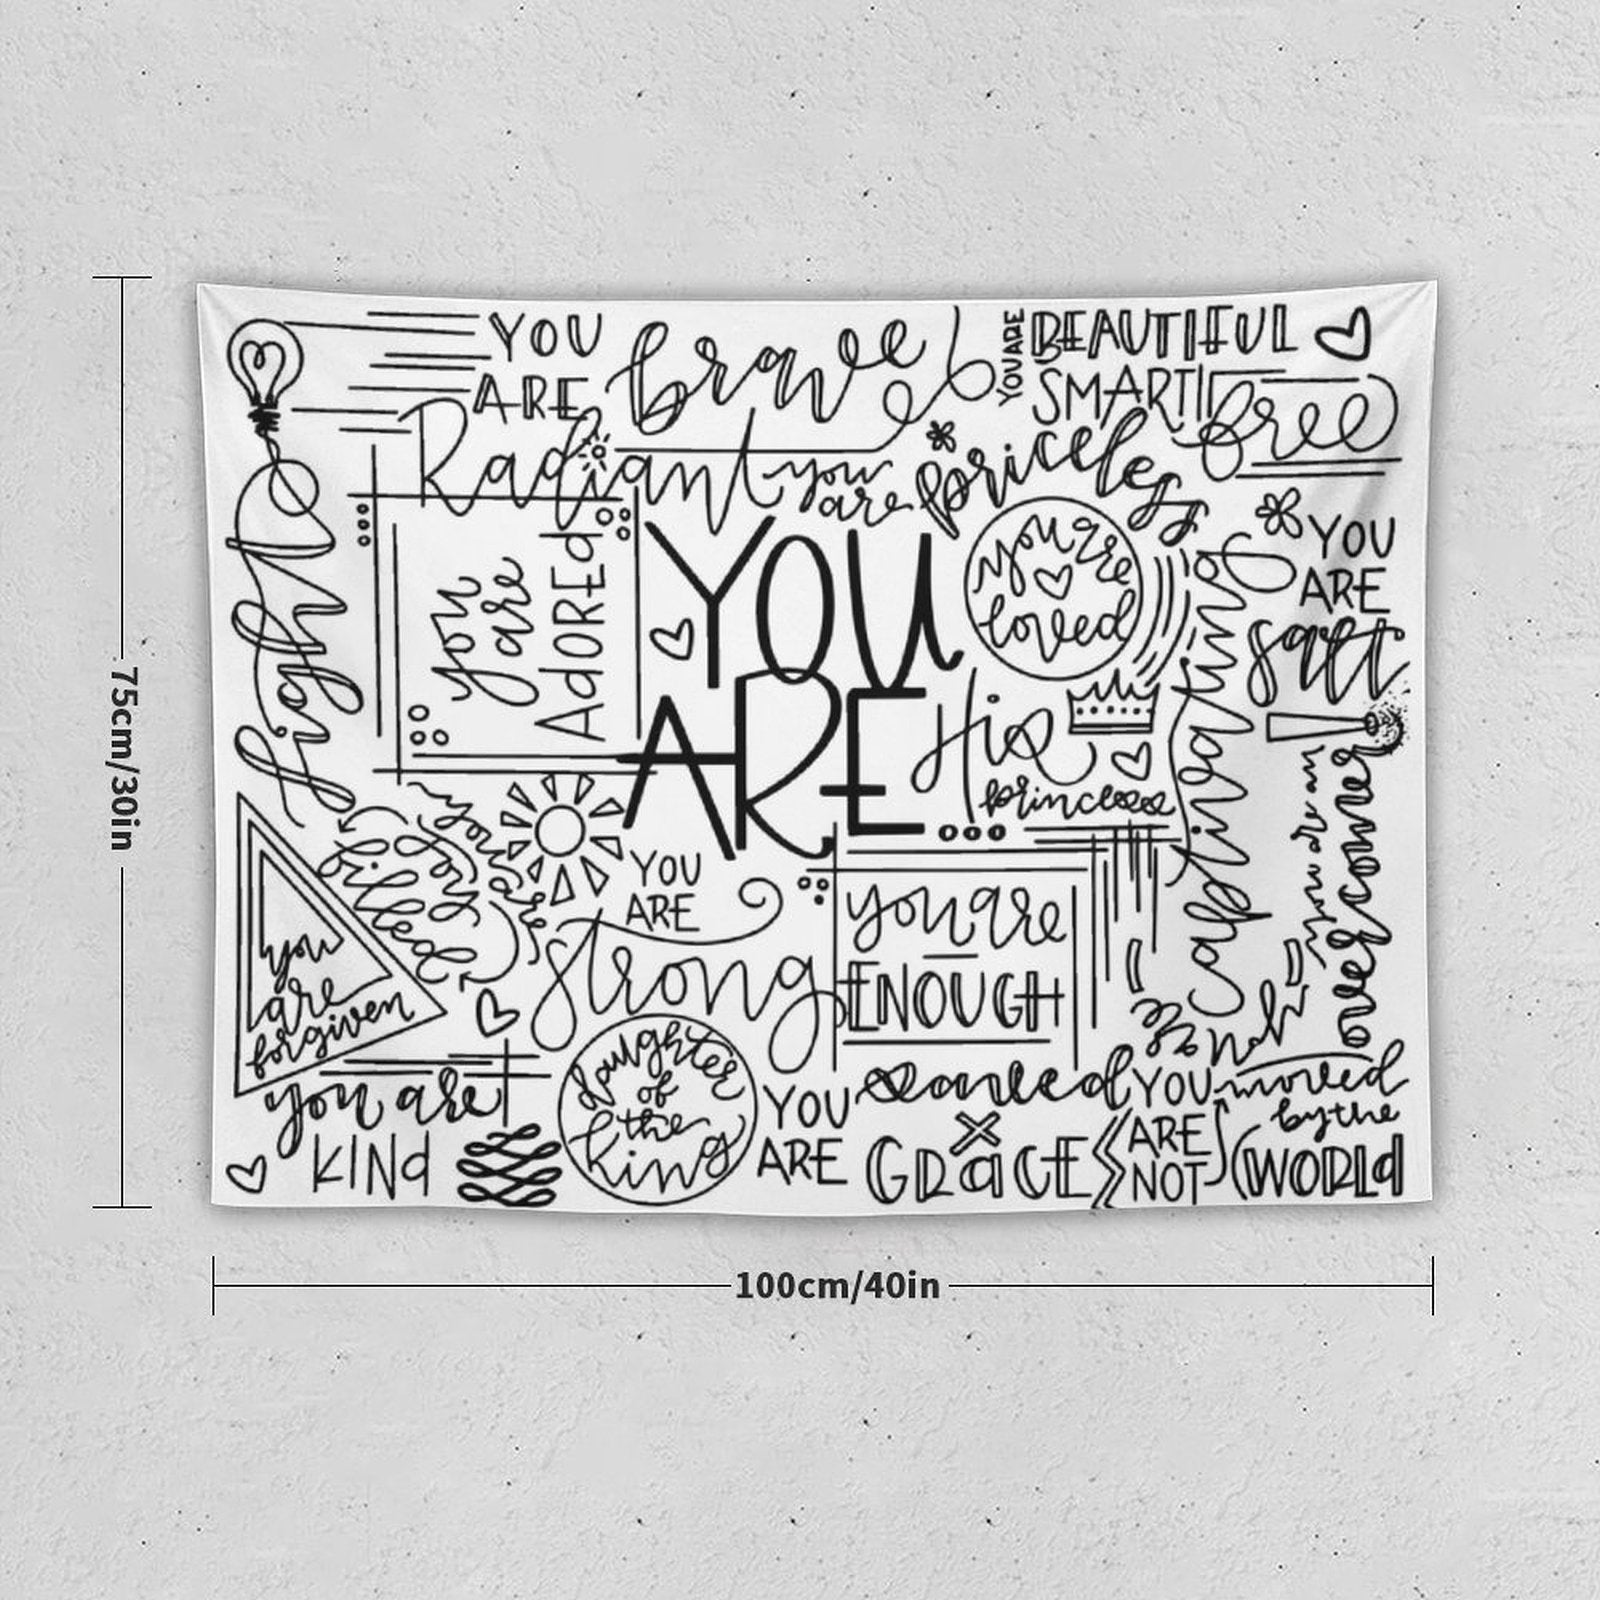 YOU
ARE
brave
YOU ARE
BEAUTIFUL
SMART
free
Radiant
you
are
priceless
light
you
are
AdOREd
YOU
ARE
you're
loved
YOU
ARE
salt
His
princess
captivating
you are an
overcomer
you are
joy
filled
YOU
ARE
strong
you are
ENOUGH
you
are
forgiven
you are
KINd
daughter
of
the
king
YOU
ARE
saved
x
GRaCE
YOU
ARE
NOT
moved
by the
WORLd
75cm/30in
100cm/40in